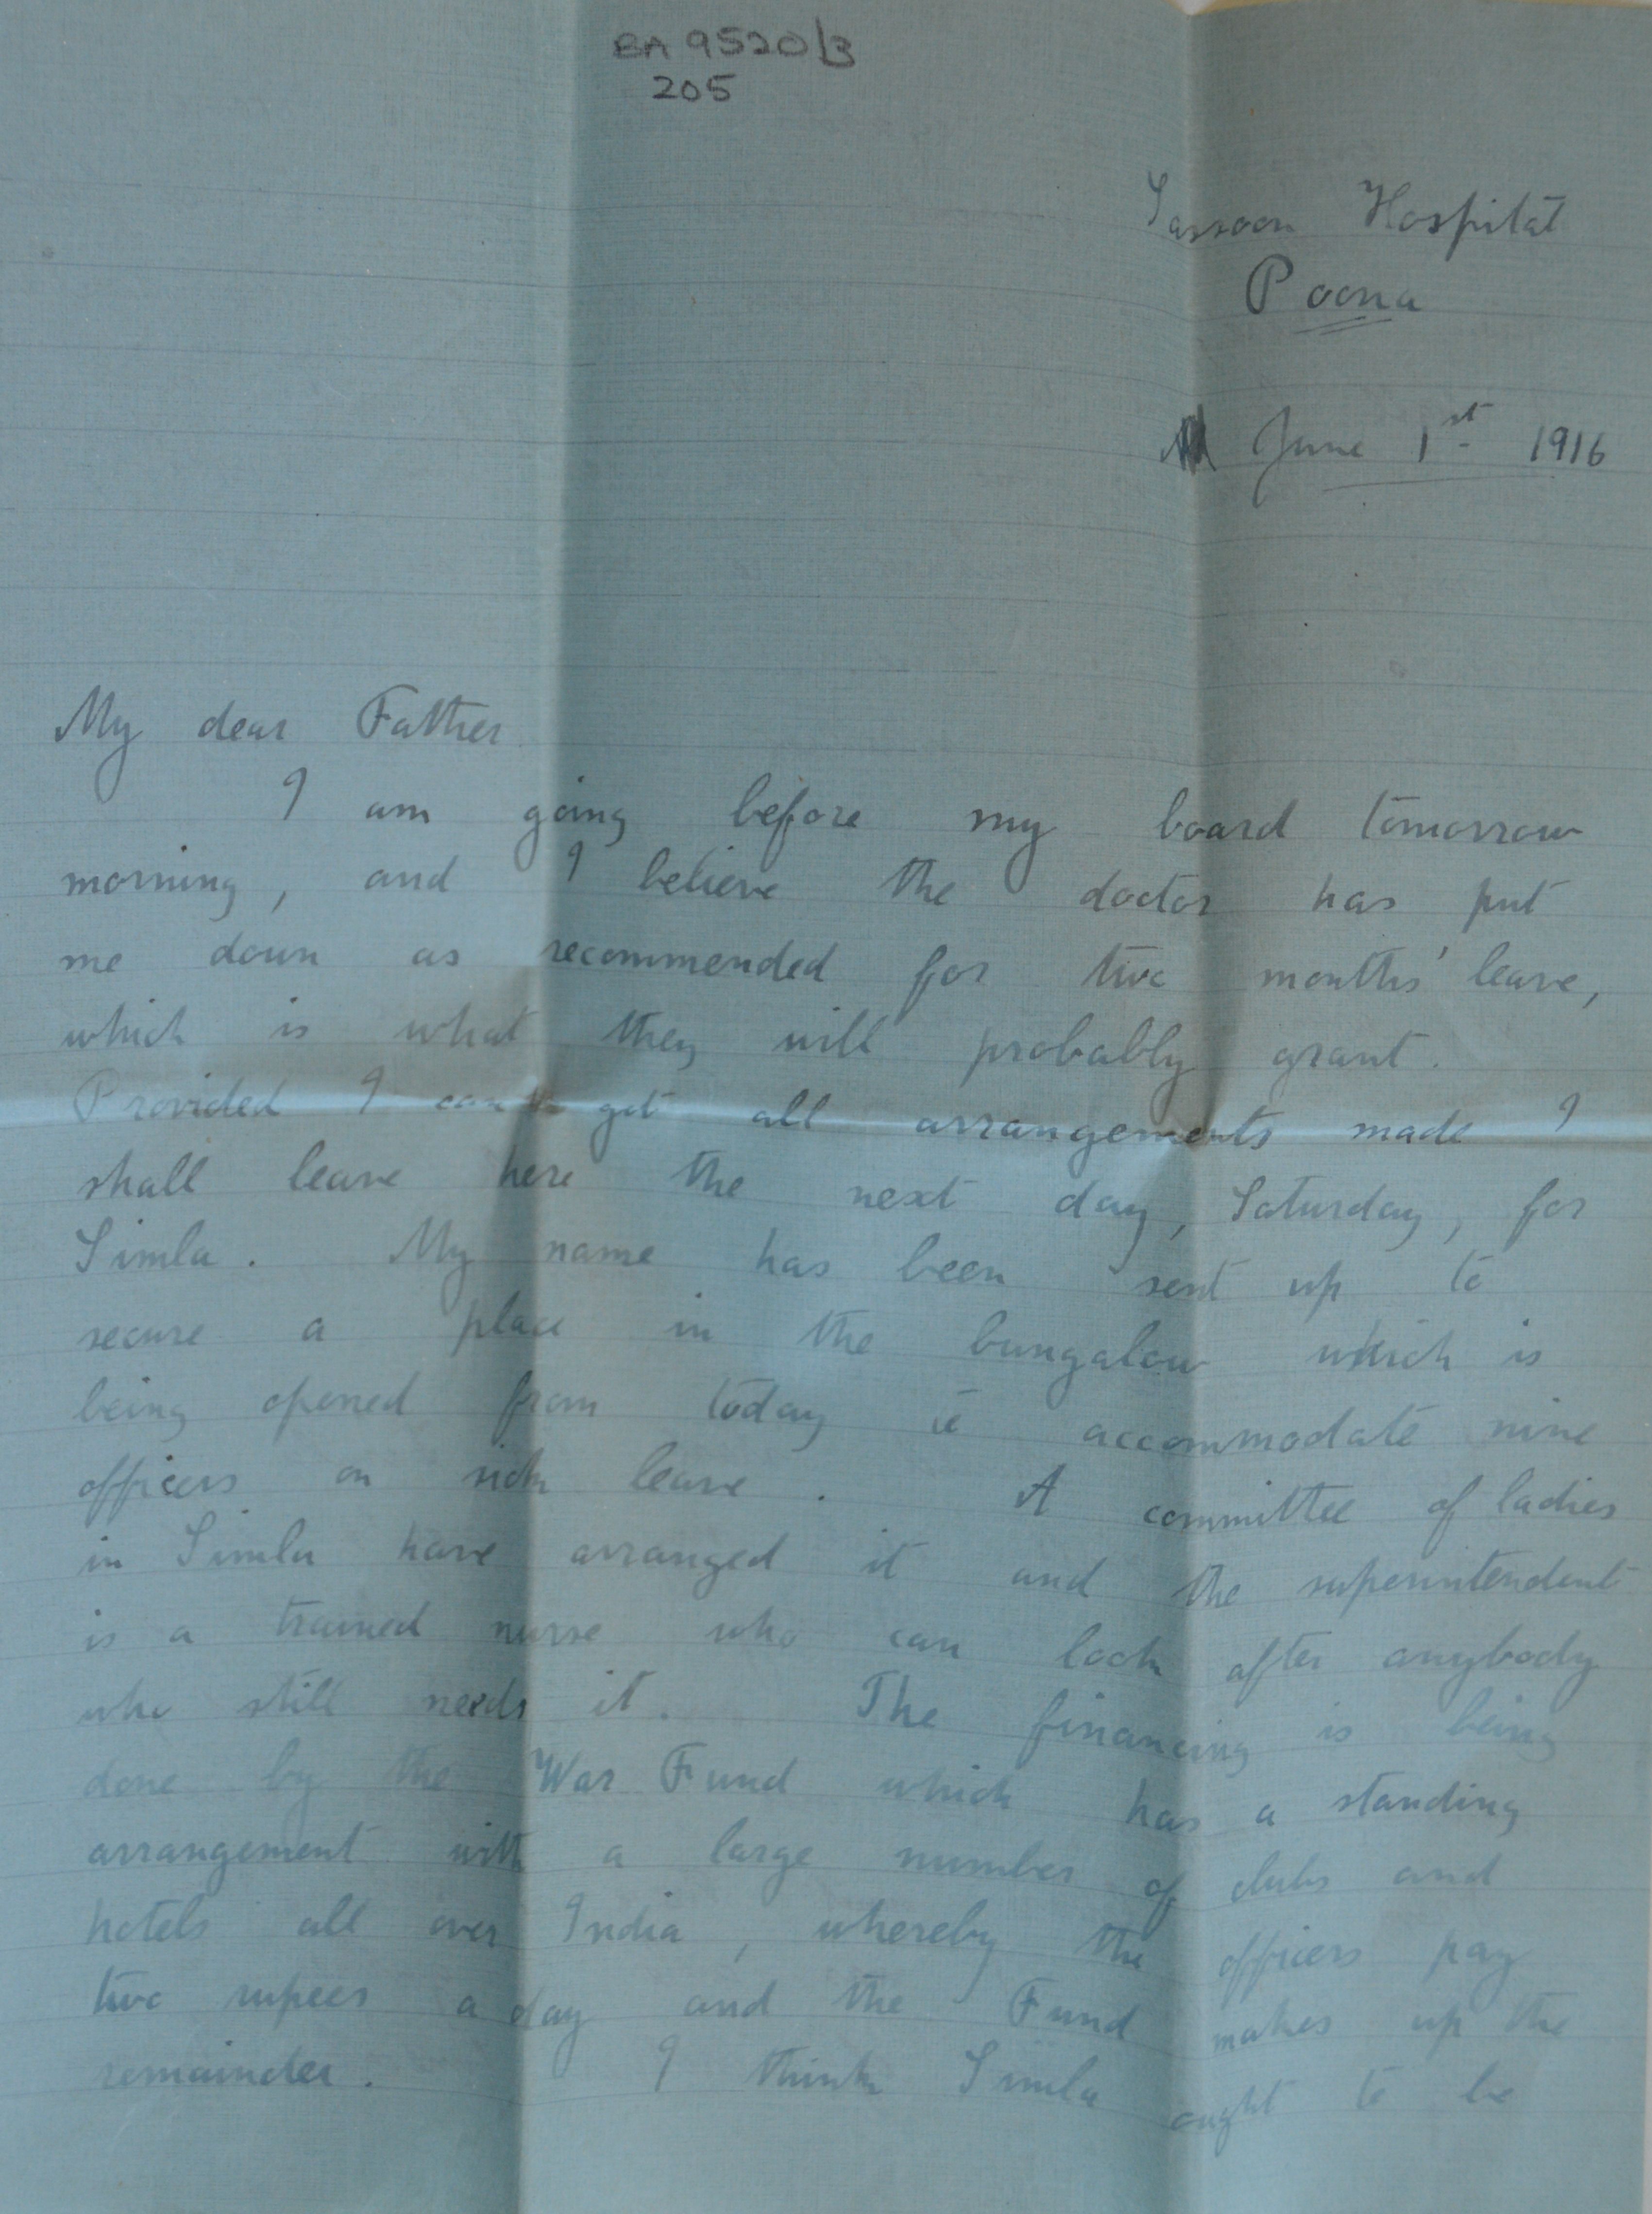 BA 9520/3
205
Sassoon Hospital
Poona
June 1st 1916
My dear Father
I am going before my board tomorrow
morning, and I believe the doctor has put
me down as recommended for two months' leave,
which is what they will probably grant.
Provided I can get all arrangements made I
shall leave here the next day, Saturday, for
Simla. My name has been sent up to
secure a place in the bungalow which is
being opened from today to accommodate nine
officers on sick leave. A committee of ladies
in Simla have arranged it and the superintendent
is a trained nurse who can look after anybody
who still needs it. The financing is being
done by the War Fund which has a standing
arrangement with a large number of clubs and
hotels all over India, whereby the officers pay
two rupees a day and the Fund makes up the
remainder. I think Simla ought to be